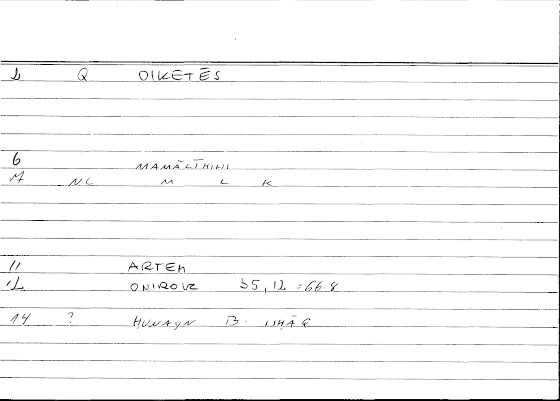 1 Q OIKETĒS
6 MAMĀLĪKIHI
M NC M L K
11 ARTEM
12 ONIROCR 35,12 = 66.8
14 ? HUNAYN B. ISḤĀQ